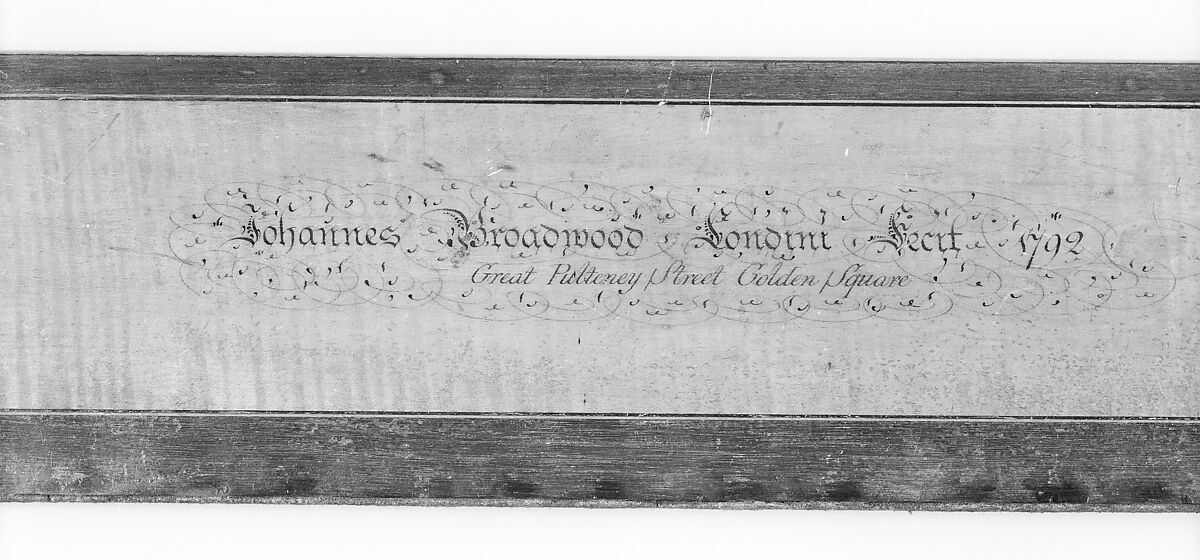 Johannes Broadwood Londini Fecit 1792
Great Pulteney Street Golden Square